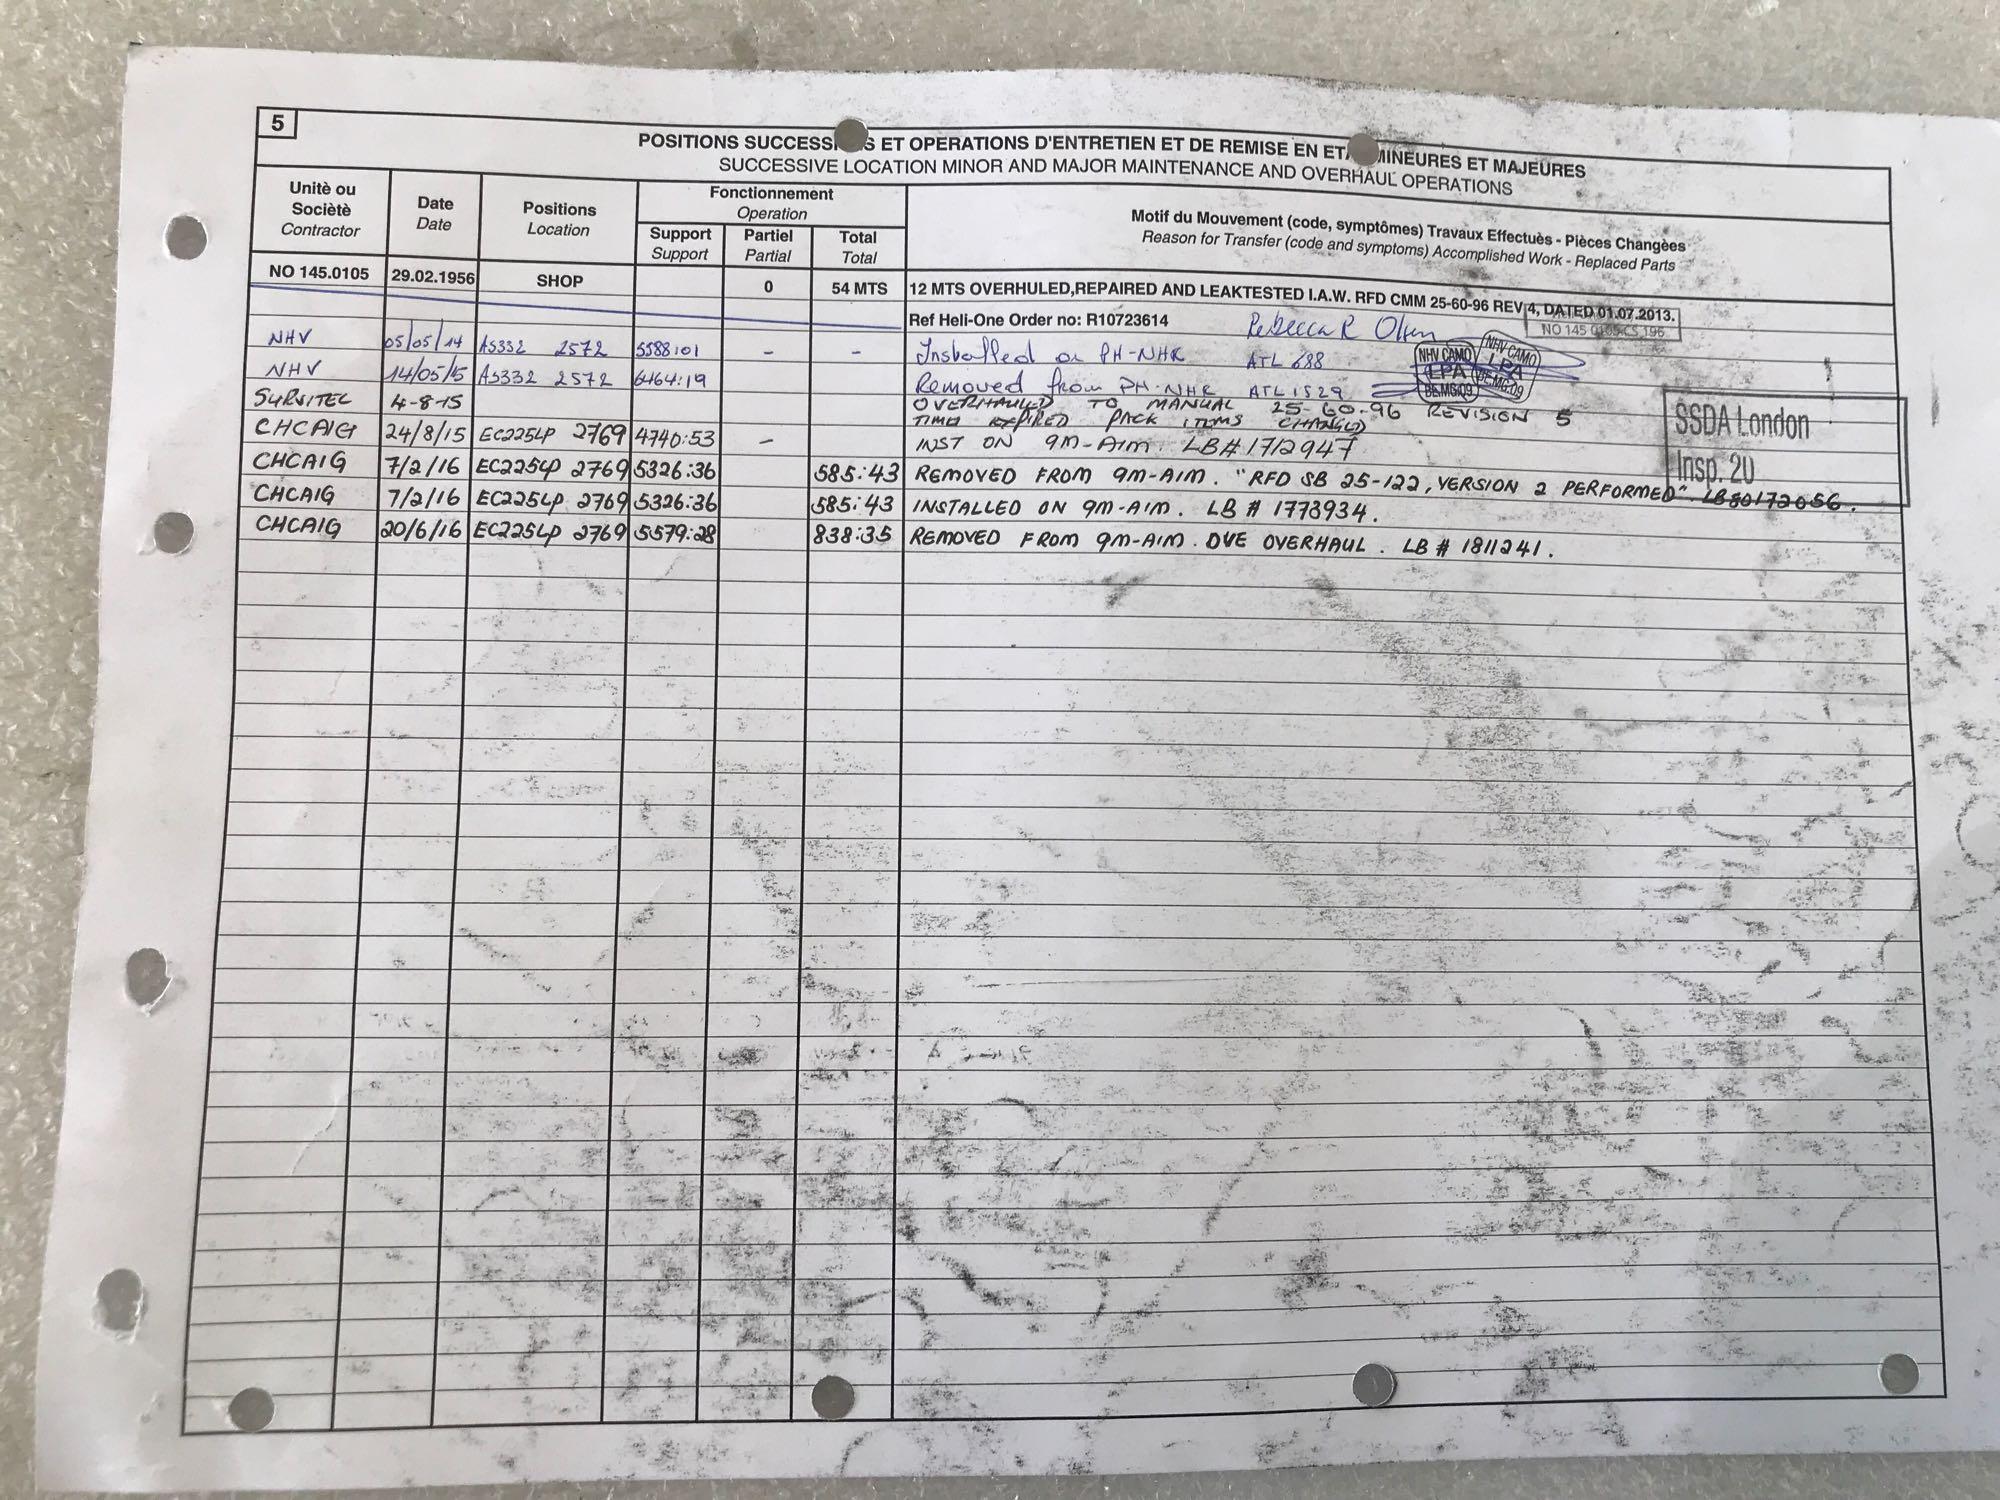 5
POSITIONS SUCCESSI S ET OPERATIONS D'ENTRETIEN ET DE REMISE EN ETA MINEURES ET MAJEURES
SUCCESSIVE LOCATION MINOR AND MAJOR MAINTENANCE AND OVERHAUL OPERATIONS
Unitè ou Socièté Contractor
Date Date
Positions Location
Fonctionnement Operation
Support Support
Partiel Partial
Total Total
Motif du Mouvement (code, symptômes) Travaux Effectuès - Pièces Changèes
Reason for Transfer (code and symptoms) Accomplished Work - Replaced Parts
NO 145.0105 29.02.1956 SHOP 0 54 MTS 12 MTS OVERHULED,REPAIRED AND LEAKTESTED I.A.W. RFD CMM 25-60-96 REV 4, DATED 01.07.2013.
Ref Heli-One Order no: R10723614 Rebecca R Olsen
NO 145 0105 CS 196
NHV 05/05/14 AS332 2572 5588:01 - - Installed on PH-NHR ATL 688
NHV 14/05/15 AS332 2572 6464:19 Removed from PH-NHR ATL 1529
NHV CAMO LPA BE.MG.09
NHV CAMO LPA BE.MG.09
SURVITEC 4-8-15 OVERHAULED TO MANUAL 25-60-96 REVISION 5
TIME EXPIRED PACK ITEMS CHANGED
SSDA London
Insp. 20
CHCAIG 24/8/15 EC225LP 2769 4740:53 - INST ON 9M-AIM. LB# 1712947
CHCAIG 7/2/16 EC225LP 2769 5326:36 585:43 REMOVED FROM 9M-AIM. "RFD SB 25-122, VERSION 2 PERFORMED". LB80172056.
CHCAIG 7/2/16 EC225LP 2769 5326:36 585:43 INSTALLED ON 9M-AIM. LB # 1773934.
CHCAIG 20/6/16 EC225LP 2769 5579:28 838:35 REMOVED FROM 9M-AIM. DUE OVERHAUL. LB # 1811241.